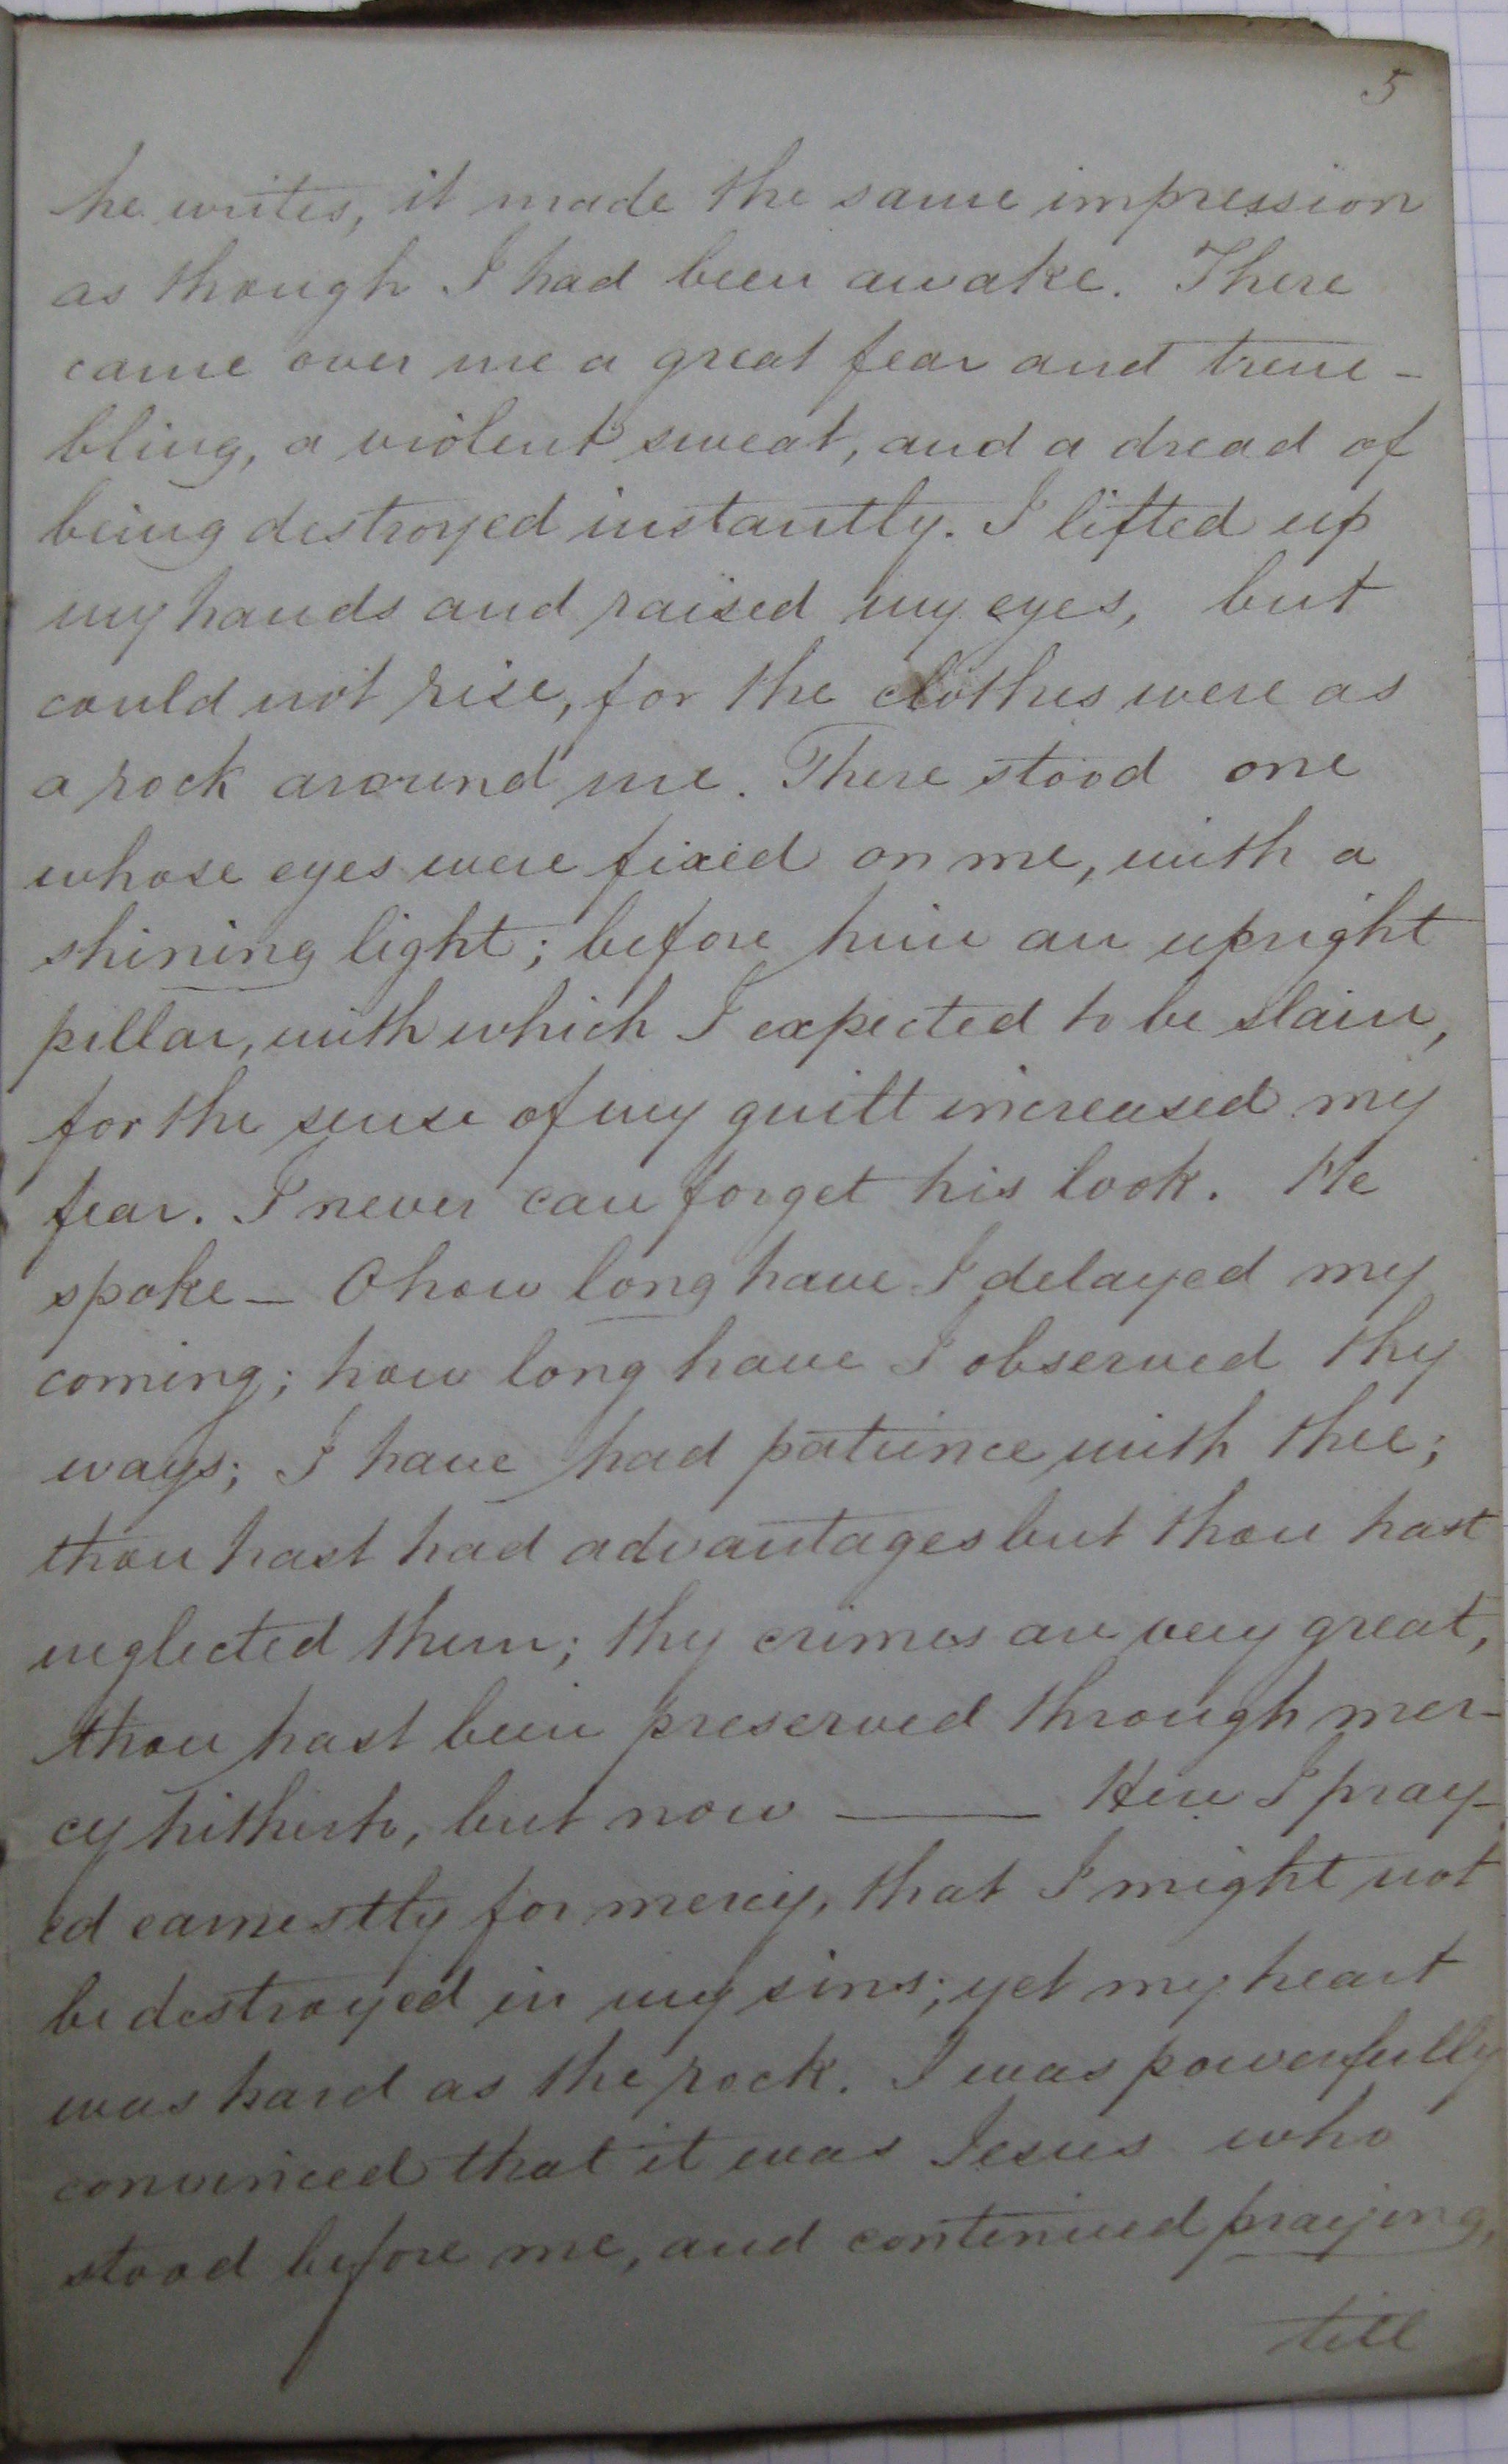 5
he writes, it made the same impression
as though I had been awake. There
came over me a great fear and trem-
bling, a violent sweat, and a dread of
being destroyed instantly. I lifted up
my hands and raised my eyes, but
could not rise, for the clothes were as
a rock around me. There stood one
whose eyes were fixed on me, with a
shining light; before him an upright
pillar, with which I expected to be slain,
for the sense of my guilt increased my
fear. I never can forget his look. He
spoke — O how long have I delayed my
coming; how long have I observed thy
ways; I have had patience with thee;
thou hast had advantages but thou hast
neglected them; thy crimes are very great,
thou hast been preserved through mer-
cy hitherto, but now —— Here I pray-
ed earnestly for mercy, that I might not
be destroyed in my sins; yet my heart
was hard as the rock. I was powerfully
convinced that it was Jesus who
stood before me, and continued praying,
till